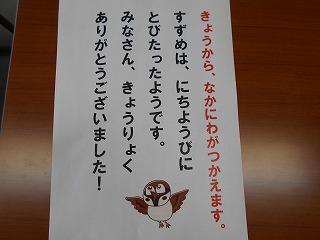 きょうから、なかにわがつかえます。
すずめは、にちようびに
とびたったようです。
みなさん、きょうりょく
ありがとうございました！